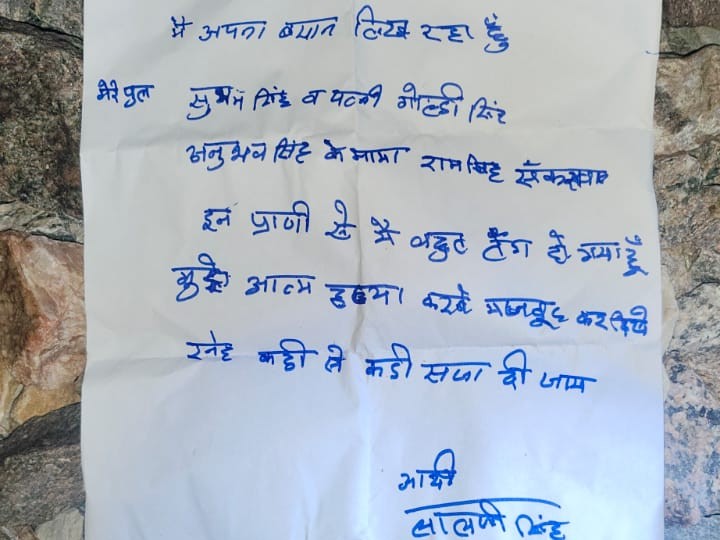 मै अपना बयान लिख रहा हूँ
मेरे पुत्र सुभम सिंह व पत्नी गोल्डी सिंह
अनुभव सिंह के मामा राम सिंह
इन प्राणी से मै बहुत तँग हो गया हूँ
मुझे आत्म हत्या करने मजबूर कर दिये
इनेह कडी से कडी सजा दी जाय
प्रार्थी
लालजी सिंह